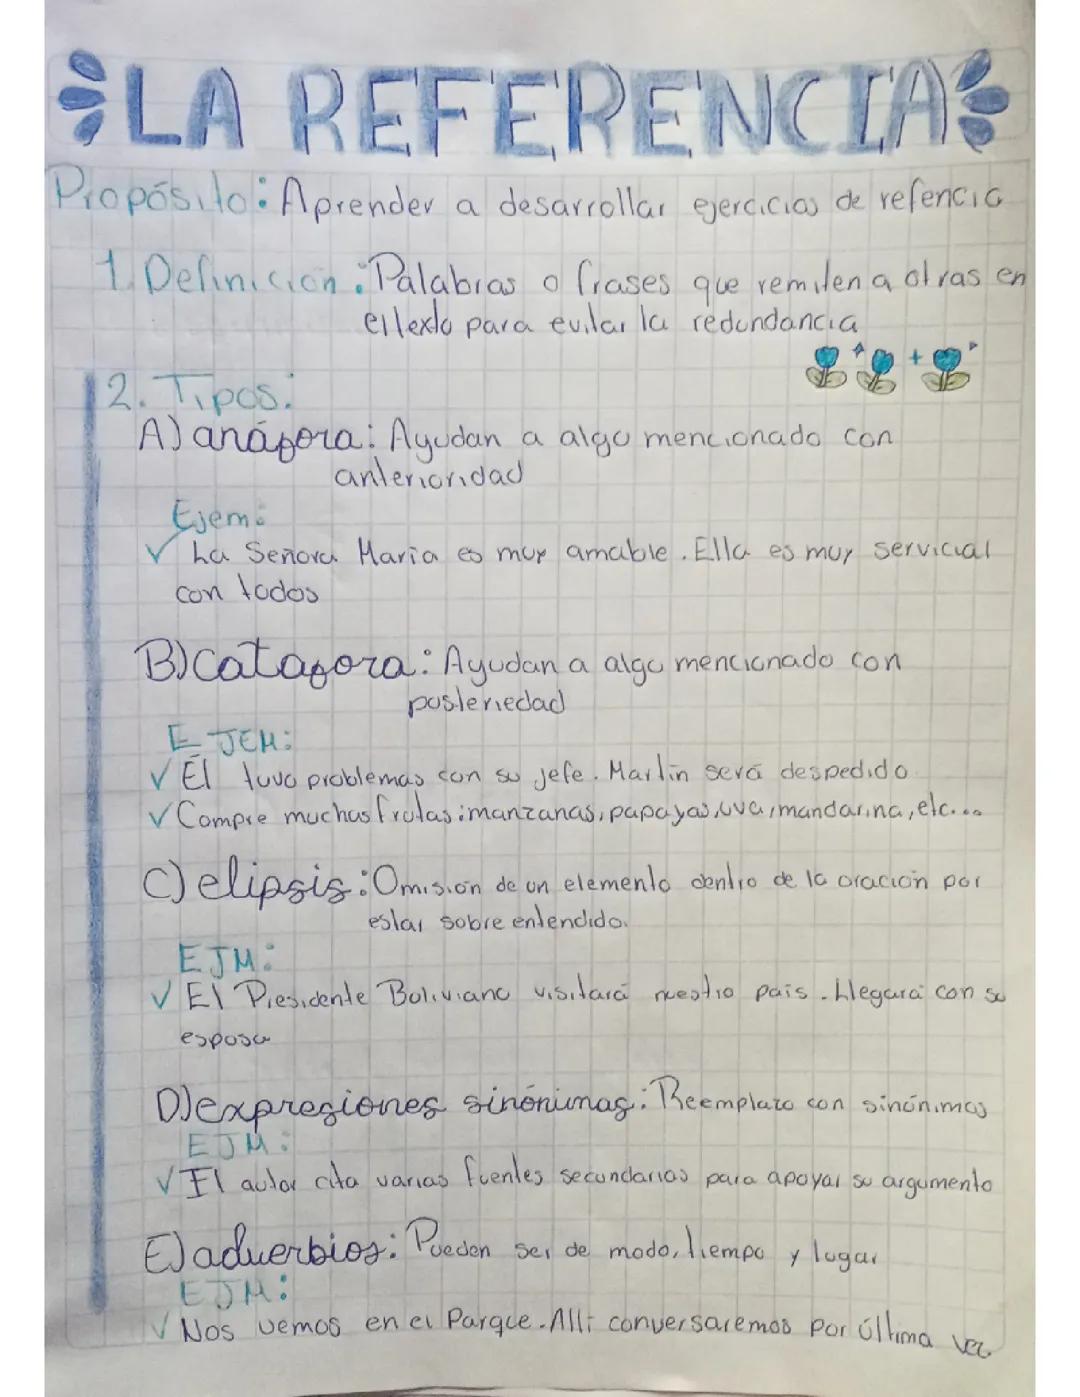 LA REFERENCIA
Propósito: Aprender a desarrollar ejercicios de refencia
1. Definición: Palabras o frases que remiten a otras en
el texto para evitar la redundancia
2. Tipos:
A) anáfora: Ayudan a algo mencionado con
anterioridad
Ejem:
✓ La Señora María es muy amable. Ella es muy servicial
con todos
B) catafora: Ayudan a algo mencionado con
posteriedad
EJEM:
✓ El tuvo problemas con su jefe. Martín será despedido
✓ Compre muchas frutas: manzanas, papayas, uva, mandarina, etc...
C) elipsis: Omisión de un elemento dentro de la oración por
estar sobre entendido.
EJM:
✓ El Presidente Boliviano visitará nuestro país. Llegará con su
esposa
D) expresiones sinónimas: Reemplazo con sinónimos
EJM:
✓ El autor cita varias fuentes secundarias para apoyar su argumento
E) adverbios: Pueden ser de modo, tiempo y lugar
EJM:
✓ Nos vemos en el Parque. Allí conversaremos por última vez